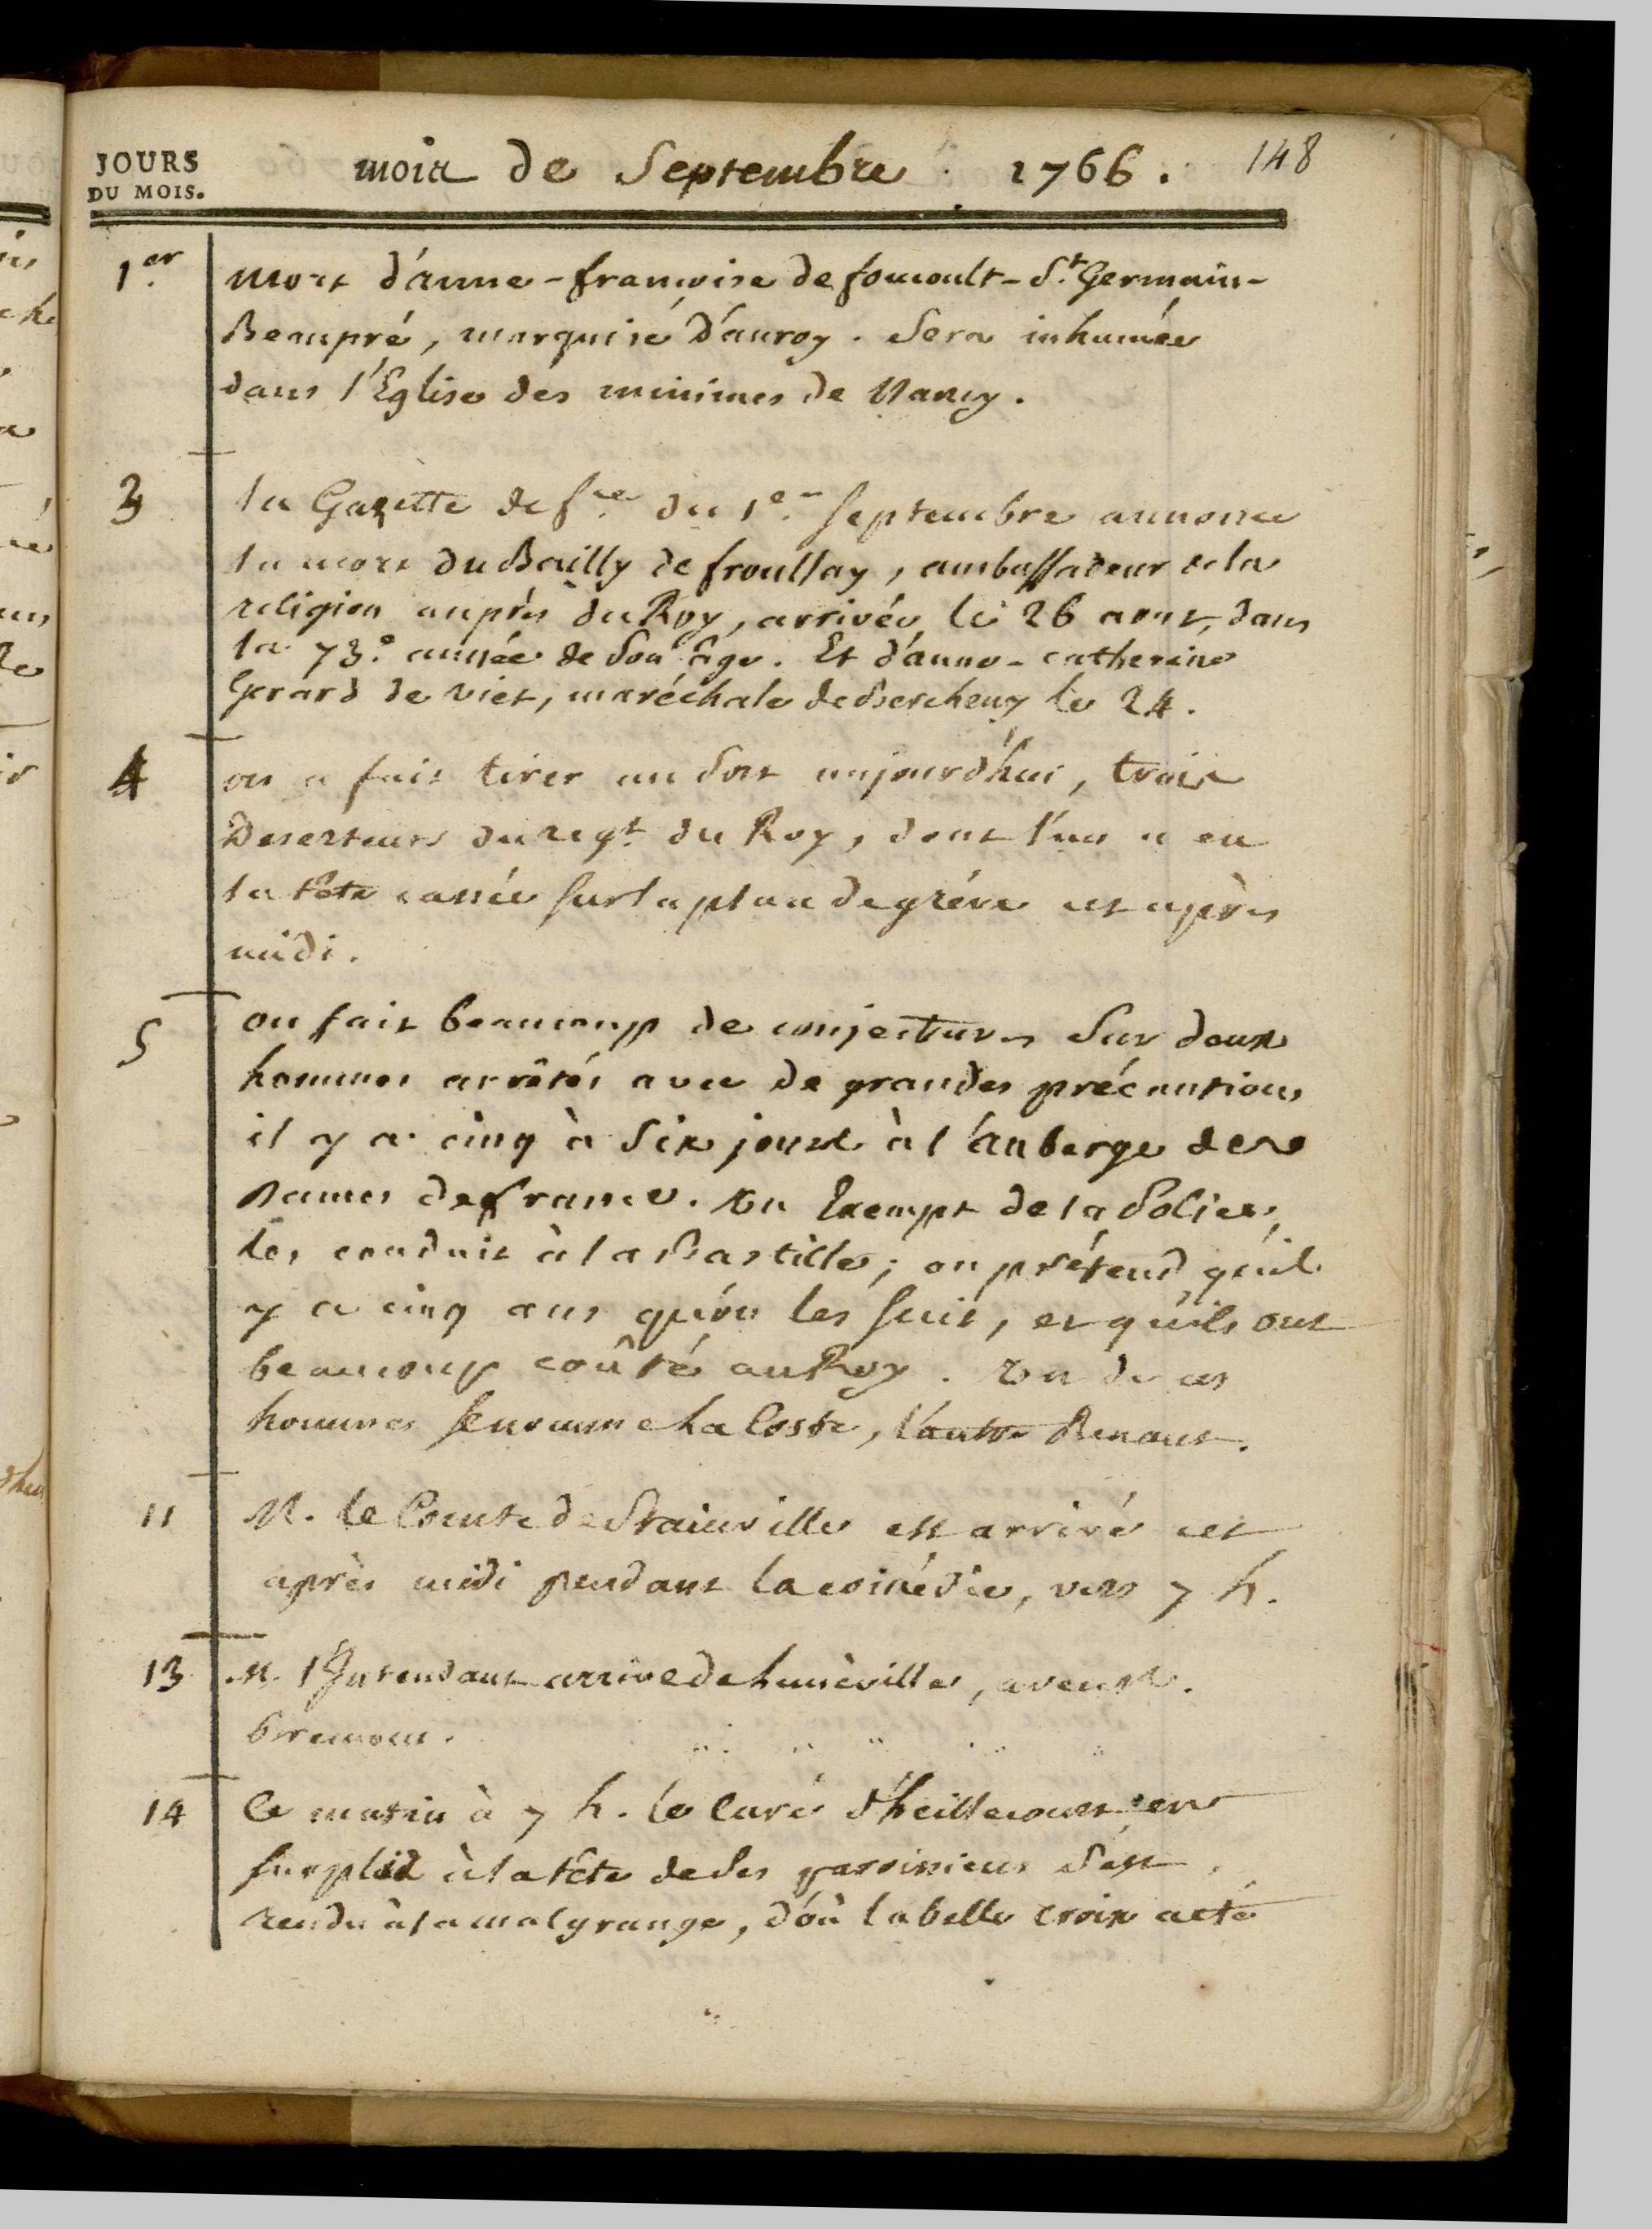 JOURS
DU MOIS.
mois de Septembre 1766.
148
1.er
mort d'anne-françoise de foucoult-St. Germain-
Beaupré, marquise d'auroy. Sera inhumée
dans l'Eglise des minimes de Nancy.
3
la Gazette de f.ce du 1er. Septembre annonce
la mort du Bailly de froullay, ambassadeur de la
religion auprès du Roy, arrivée le 26 aout, dans
la 73.e année de son âge. Et d'anne-catherine
Gerard de viet, maréchale de Bercheny le 24.
4
on a fait tirer au sort aujourd'hui, trois
Deserteurs du regt. du Roy, dont l'un a eu
la tête cassée sur la place de gréve cet après
midi.
5
on fait beaucoup de conjectures sur deux
hommes arrêtés avec de grandes précautions
il y a cinq à six jours à l'auberge des
Dames de france. Un Exempt de la Police,
les conduit à la Bastille; on prétend qu'il
y a cinq ans qu'on les suit, et qu'ils ont
beaucoup coûté au Roy. Un de ces
hommes se nomme La Coste, l'autre Renaut.
11
M. le Comte de Stainville est arrivé cet
après midi pendant la comédie, vers 7 h.
13
M. l'Intendant arrive de Lunéville, avec M.
Bremont.
14
Ce matin à 7 h. le Curé d'heillecourt en
surplis à la tête de ses paroissiens s'est
rendu à la malgrange, d'où la belle croix a eté